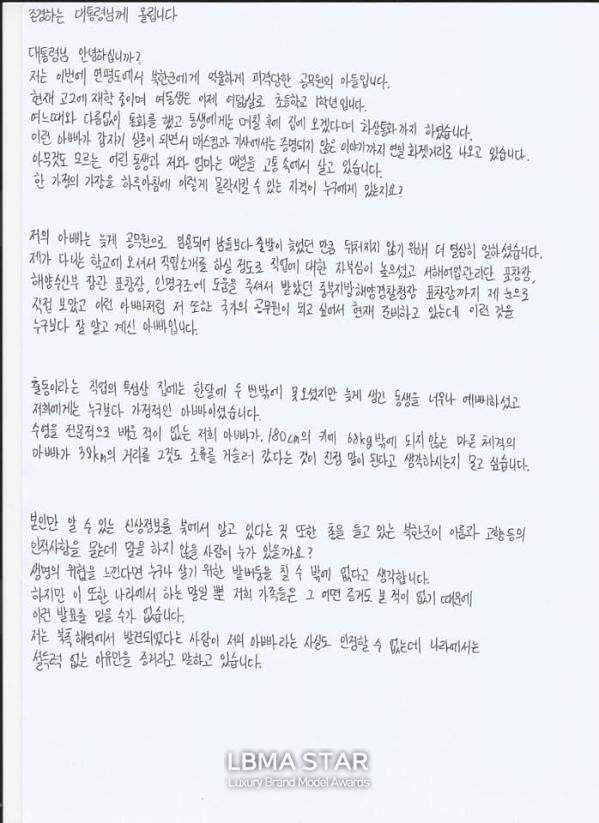 존경하는 대통령님께 올립니다
대통령님 안녕하십니까?
저는 이번에 연평도에서 북한군에게 억울하게 피격당한 공무원의 아들입니다.
현재 고2에 재학 중이며 여동생은 이제 여덟살로 초등학교 1학년입니다.
여느때와 다름없이 통화를 했고 동생에게는 며칠 후에 집에 오겠다며 화상통화까지 하였습니다.
이런 아빠가 갑자기 실종이 되면서 매스컴과 기사에서는 증명되지 않은 이야기까지 연일 화젯거리로 나오고 있습니다.
아무것도 모르는 어린 동생과 저와 엄마는 매일을 고통 속에서 살고 있습니다.
한 가정의 가장을 하루아침에 이렇게 몰락시킬 수 있는 자격이 누구에게 있는지요?
저의 아빠는 늦게 공무원으로 임용되어 남들보다 출발이 늦었던 만큼 뒤처지지 않기 위해 더 열심히 일하셨습니다.
제가 다니는 학교에 오셔서 직업소개를 하실 정도로 직업에 대한 자부심이 높으셨고 서해어업관리단 표창장,
해양수산부 장관 표창장, 인명구조에 도움을 주셔서 받았던 중부지방해양경찰청장 표창장까지 제 눈으로
직접 보았고 이런 아빠처럼 저 또한 국가의 공무원이 되고 싶어서 현재 준비하고 있는데 이런 것을
누구보다 잘 알고 계신 아빠입니다.
출동이라는 직업의 특성상 집에는 한달에 두 번밖에 못오셨지만 늦게 생긴 동생을 너무나 예뻐하셨고
저희에게는 누구보다 가정적인 아빠이셨습니다.
수영을 전문적으로 배운 적이 없는 저희 아빠가, 180cm의 키에 68kg밖에 되지 않는 마른 체격의
아빠가 38km의 거리를 그것도 조류를 거슬러 갔다는 것이 진정 말이 된다고 생각하시는지 묻고 싶습니다.
본인만 알 수 있는 신상정보를 북에서 알고 있다는 것 또한 총을 들고 있는 북한군이 이름과 고향 등의
인적사항을 묻는데 말을 하지 않을 사람이 누가 있을까요?
생명의 위협을 느낀다면 누구나 살기 위한 발버둥을 칠 수 밖에 없다고 생각합니다.
하지만 이 또한 나라에서 하는 말일 뿐 저희 가족들은 그 어떤 증거도 본 적이 없기 때문에
이런 발표를 믿을 수가 없습니다.
저는 북측 해역에서 발견되었다는 사람이 저의 아빠라는 사실도 인정할 수 없는데 나라에서는
설득력 없는 이유만을 증거라고 말하고 있습니다.
LBMA STAR
Luxury Brand Model Awards